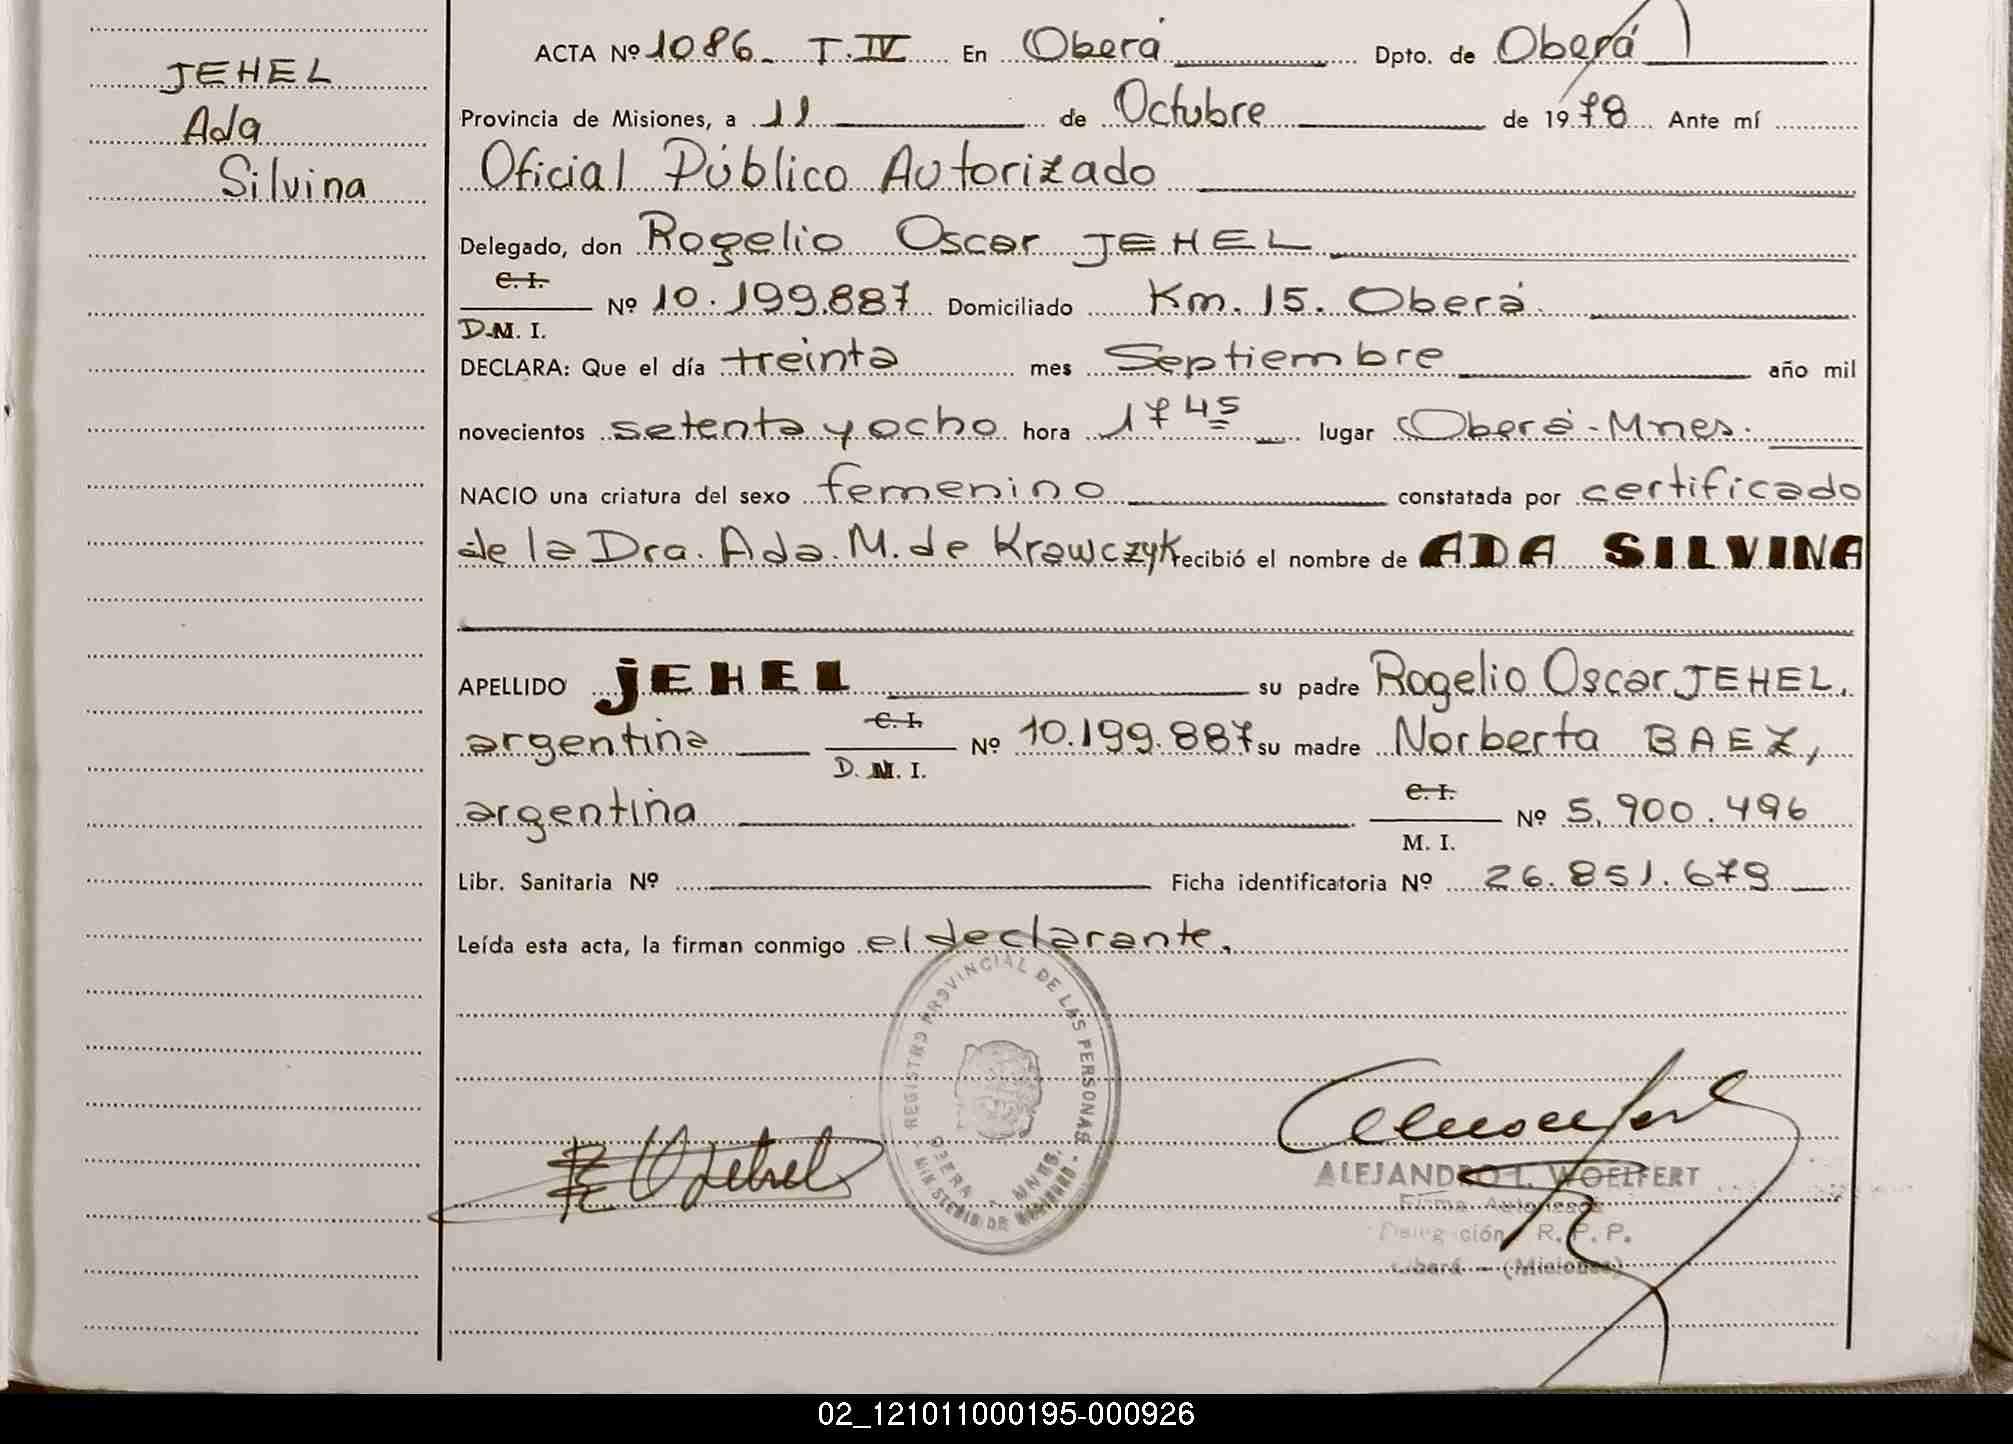 JEHEL
Ada
Silvina
ACTA Nº 1086. T. IV En Oberá Dpto. de Oberá
Provincia de Misiones, a 11 de Octubre de 1978 Ante mí
Oficial Público Autorizado
Delegado, don Rogelio Oscar JEHEL
C. I.
D.M. I. Nº 10.199.887 Domiciliado Km. 15. Oberá.
DECLARA: Que el día treinta mes Septiembre año mil
novecientos setenta y ocho hora 17 45 lugar Oberá - Mnes.
NACIO una criatura del sexo femenino constatada por certificado
de la Dra. Ada. M. de Krawczyk recibió el nombre de ADA SILVINA
APELLIDO JEHEL su padre Rogelio Oscar JEHEL,
argentina C. I. D. M. I. Nº 10.199.887 su madre Norberta BAEZ,
argentina C. I. M. I. Nº 5.900.496
Libr. Sanitaria Nº Ficha identificatoria Nº 26.851.679
Leída esta acta, la firman conmigo el declarante.
REGISTRO PROVINCIAL DE LAS PERSONAS
OBERA - MNES.
MINISTERIO DE GOBIERNO
ALEJANDRO I. WOELFERT
Firma Autorizada
Delegación R. P. P.
Oberá - (Misiones)
02_121011000195-000926